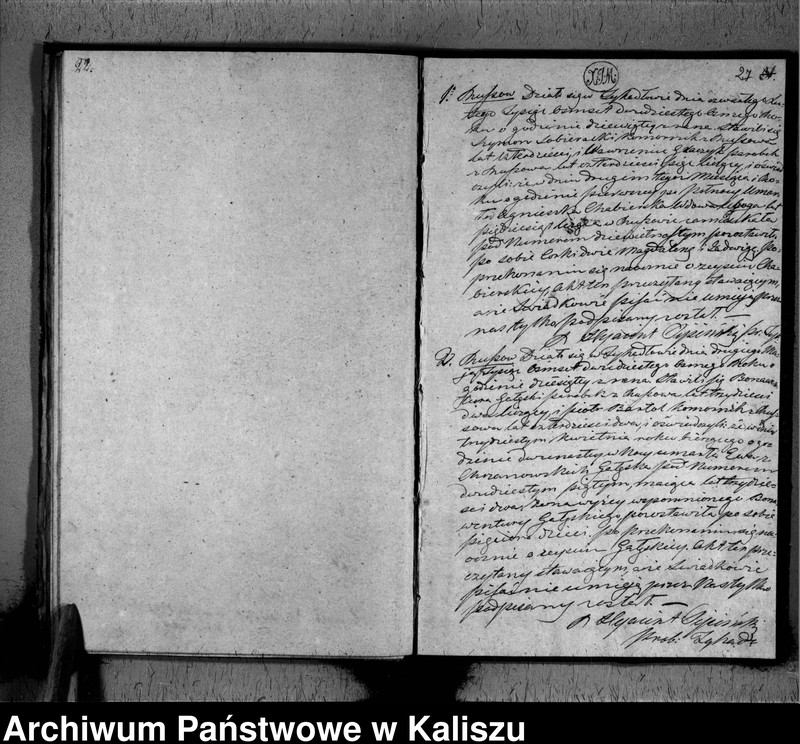 22.
XJM.
27
1. Prusow Działo się w Tykadłowie dnia
tego Tysiąc ośmset dwudziestego ósmego Ro-
ku o godzinie dziewiątey z rana. Stawili się
Szymon Sobieracki komornik z Prusowa
lat czterdzieści, i Wawrzeniec parobek
z Prusowa lat czterdzieści pięć liczący, i oświad-
czyli: że w dniu drugim tego Miesiąca i Ro-
ku o godzinie pierwszey po północy Umar-
ła Agnieszka Chabierska Wdowa lat
pięćdziesiąt w Prusowie zamieszkała
pod Numerem dziewiętnastym pozostawiła
po sobie Corki dwie Magdalenę i Jadwigę po
przekonaniu się naocznie o zeyściu Cha-
bierskiey, Akt ten przeczytany stawaiącym,
a że Świadkowie pisać nie umieją przez
nas tylko podpisany został. —
X Hyacint
2. Prusow Działo się w Tykadłowie dnia drugiego Ma-
ja Tysiąc ośmset dwudziestego ósmego Roku o
godzinie dziesiątey z rana. Stawili się Bonawen-
tura Gałęski parobek z Prusowa lat trzydzieści
dwa liczący, i Piotr Bartol komornik z Pru-
sowa lat czterdzieści dwa, i oświadczyli: że w dniu
trzydziestym Kwietnia roku bieżącego o go-
dzinie dwunastey w Nocy umarła Ewa z
Chrzanowskich Gałęska pod Numerem
dwudziestym piątym, mająca lat trzydzie-
ści dwa, żona wyżey wspomnionego Bona-
wentury Gałęskiego, pozostawiła po sobie
pięcioro dzieci. po przekonaniu się na-
ocznie o zeyściu Gałęskiey, Akt ten prze-
czytany stawaiącym, a że Świadkowie
pisać nie umieją przez Nas tylko
podpisany został. —
X Hyacint
Prob.
Archiwum Państwowe w Kaliszu